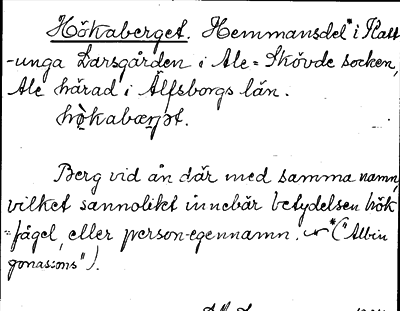 Hökaberget. Hemmansdel* i Katt-
-unga Larsgården i Ale=Skövde socken,
Ale härad i Älfsborgs län.
hökabærjət.
Berg vid ån där med samma namn,
vilket sannolikt innebär betydelsen hök
=fågel, eller person-egennamn. *("Albin
Jonassons").